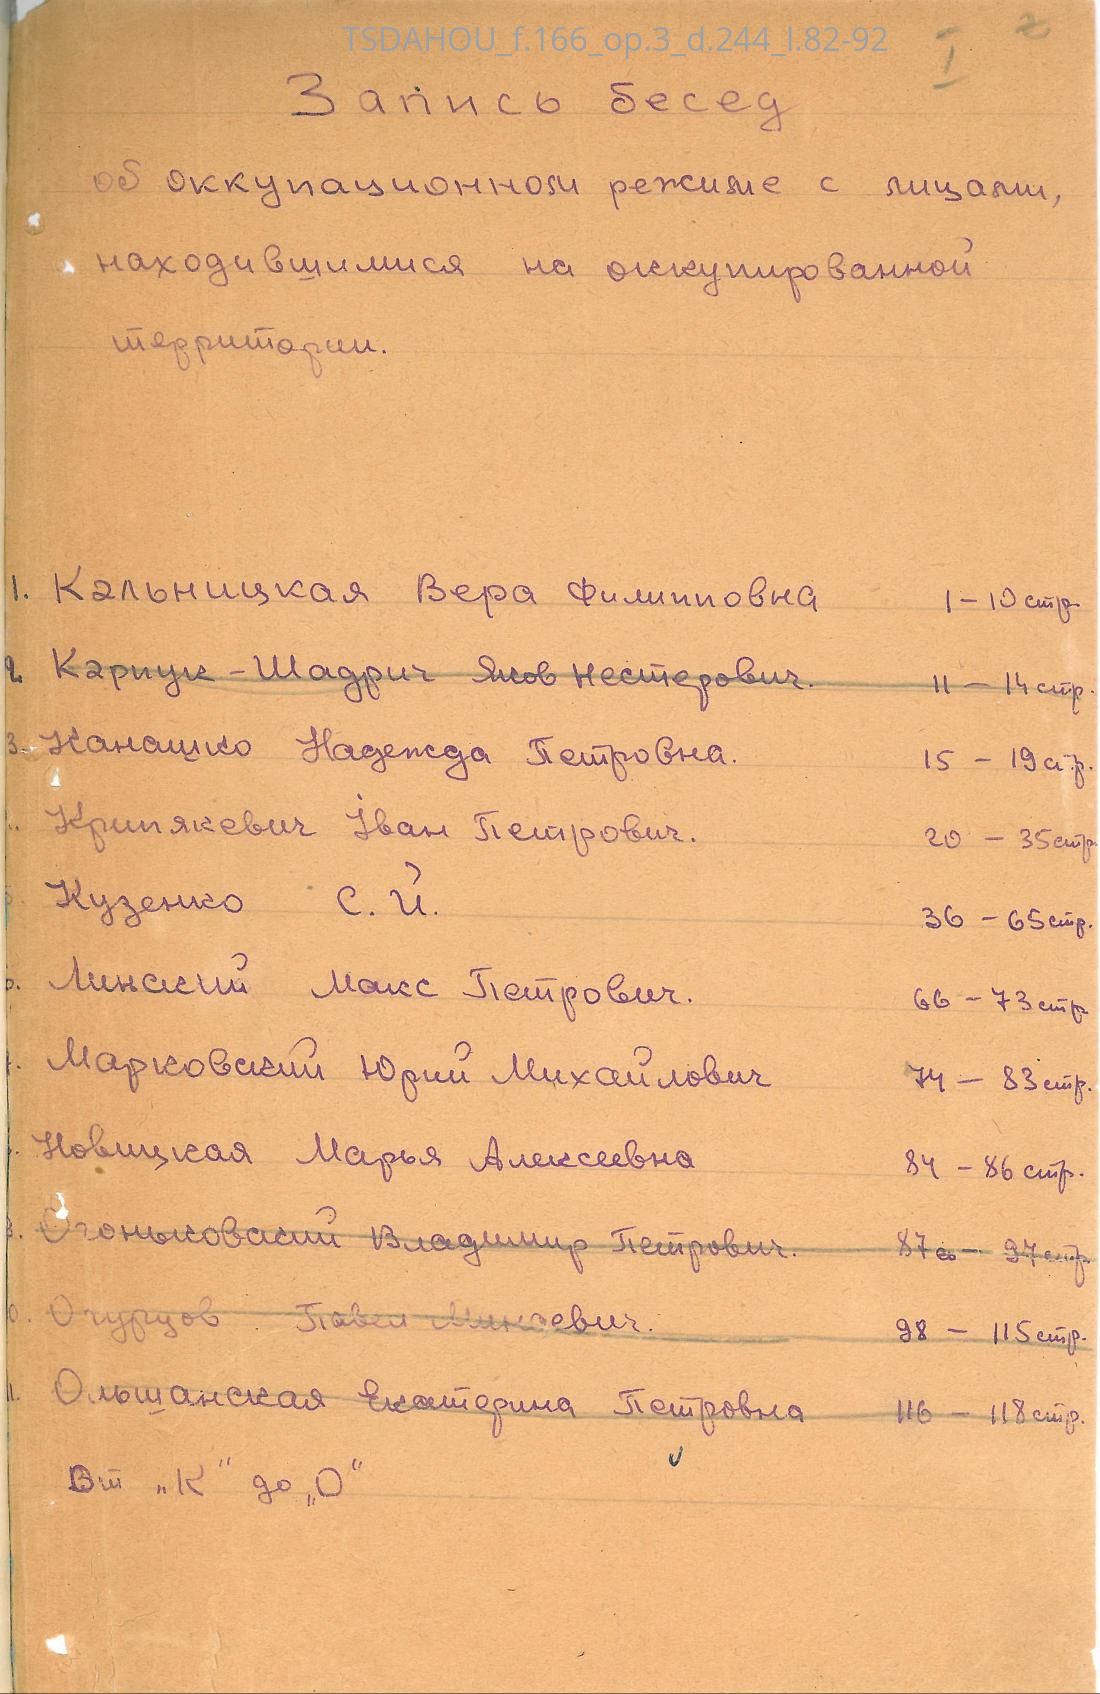 TSDAHOU_f.166_op.3_d.244_l.82-92
I 2
Запись бесед
об оккупационном режиме с лицами,
находившимися на оккупированной
территории.
1. Кальницкая Вера Филипповна 1-10 стр.
2. Карпук-Шадрич Яков Нестерович. 11 - 14 стр.
3. Канашко Надежда Петровна. 15 - 19 стр.
Крипякевич Іван Петрович. 20 - 35 стр.
Кузенко С. Й. 36 - 65 стр.
Линский Макс Петрович. 66 - 73 стр.
Марковский Юрий Михайлович 74 - 83 стр.
Новицкая Марья Алексеевна 84 - 86 стр.
Огоньковский Владимир Петрович. 87 - 97 стр.
Огурцов Павел 98 - 115 стр.
11. Ольшанская Екатерина Петровна 116 - 118 стр.
От „К" до „О"